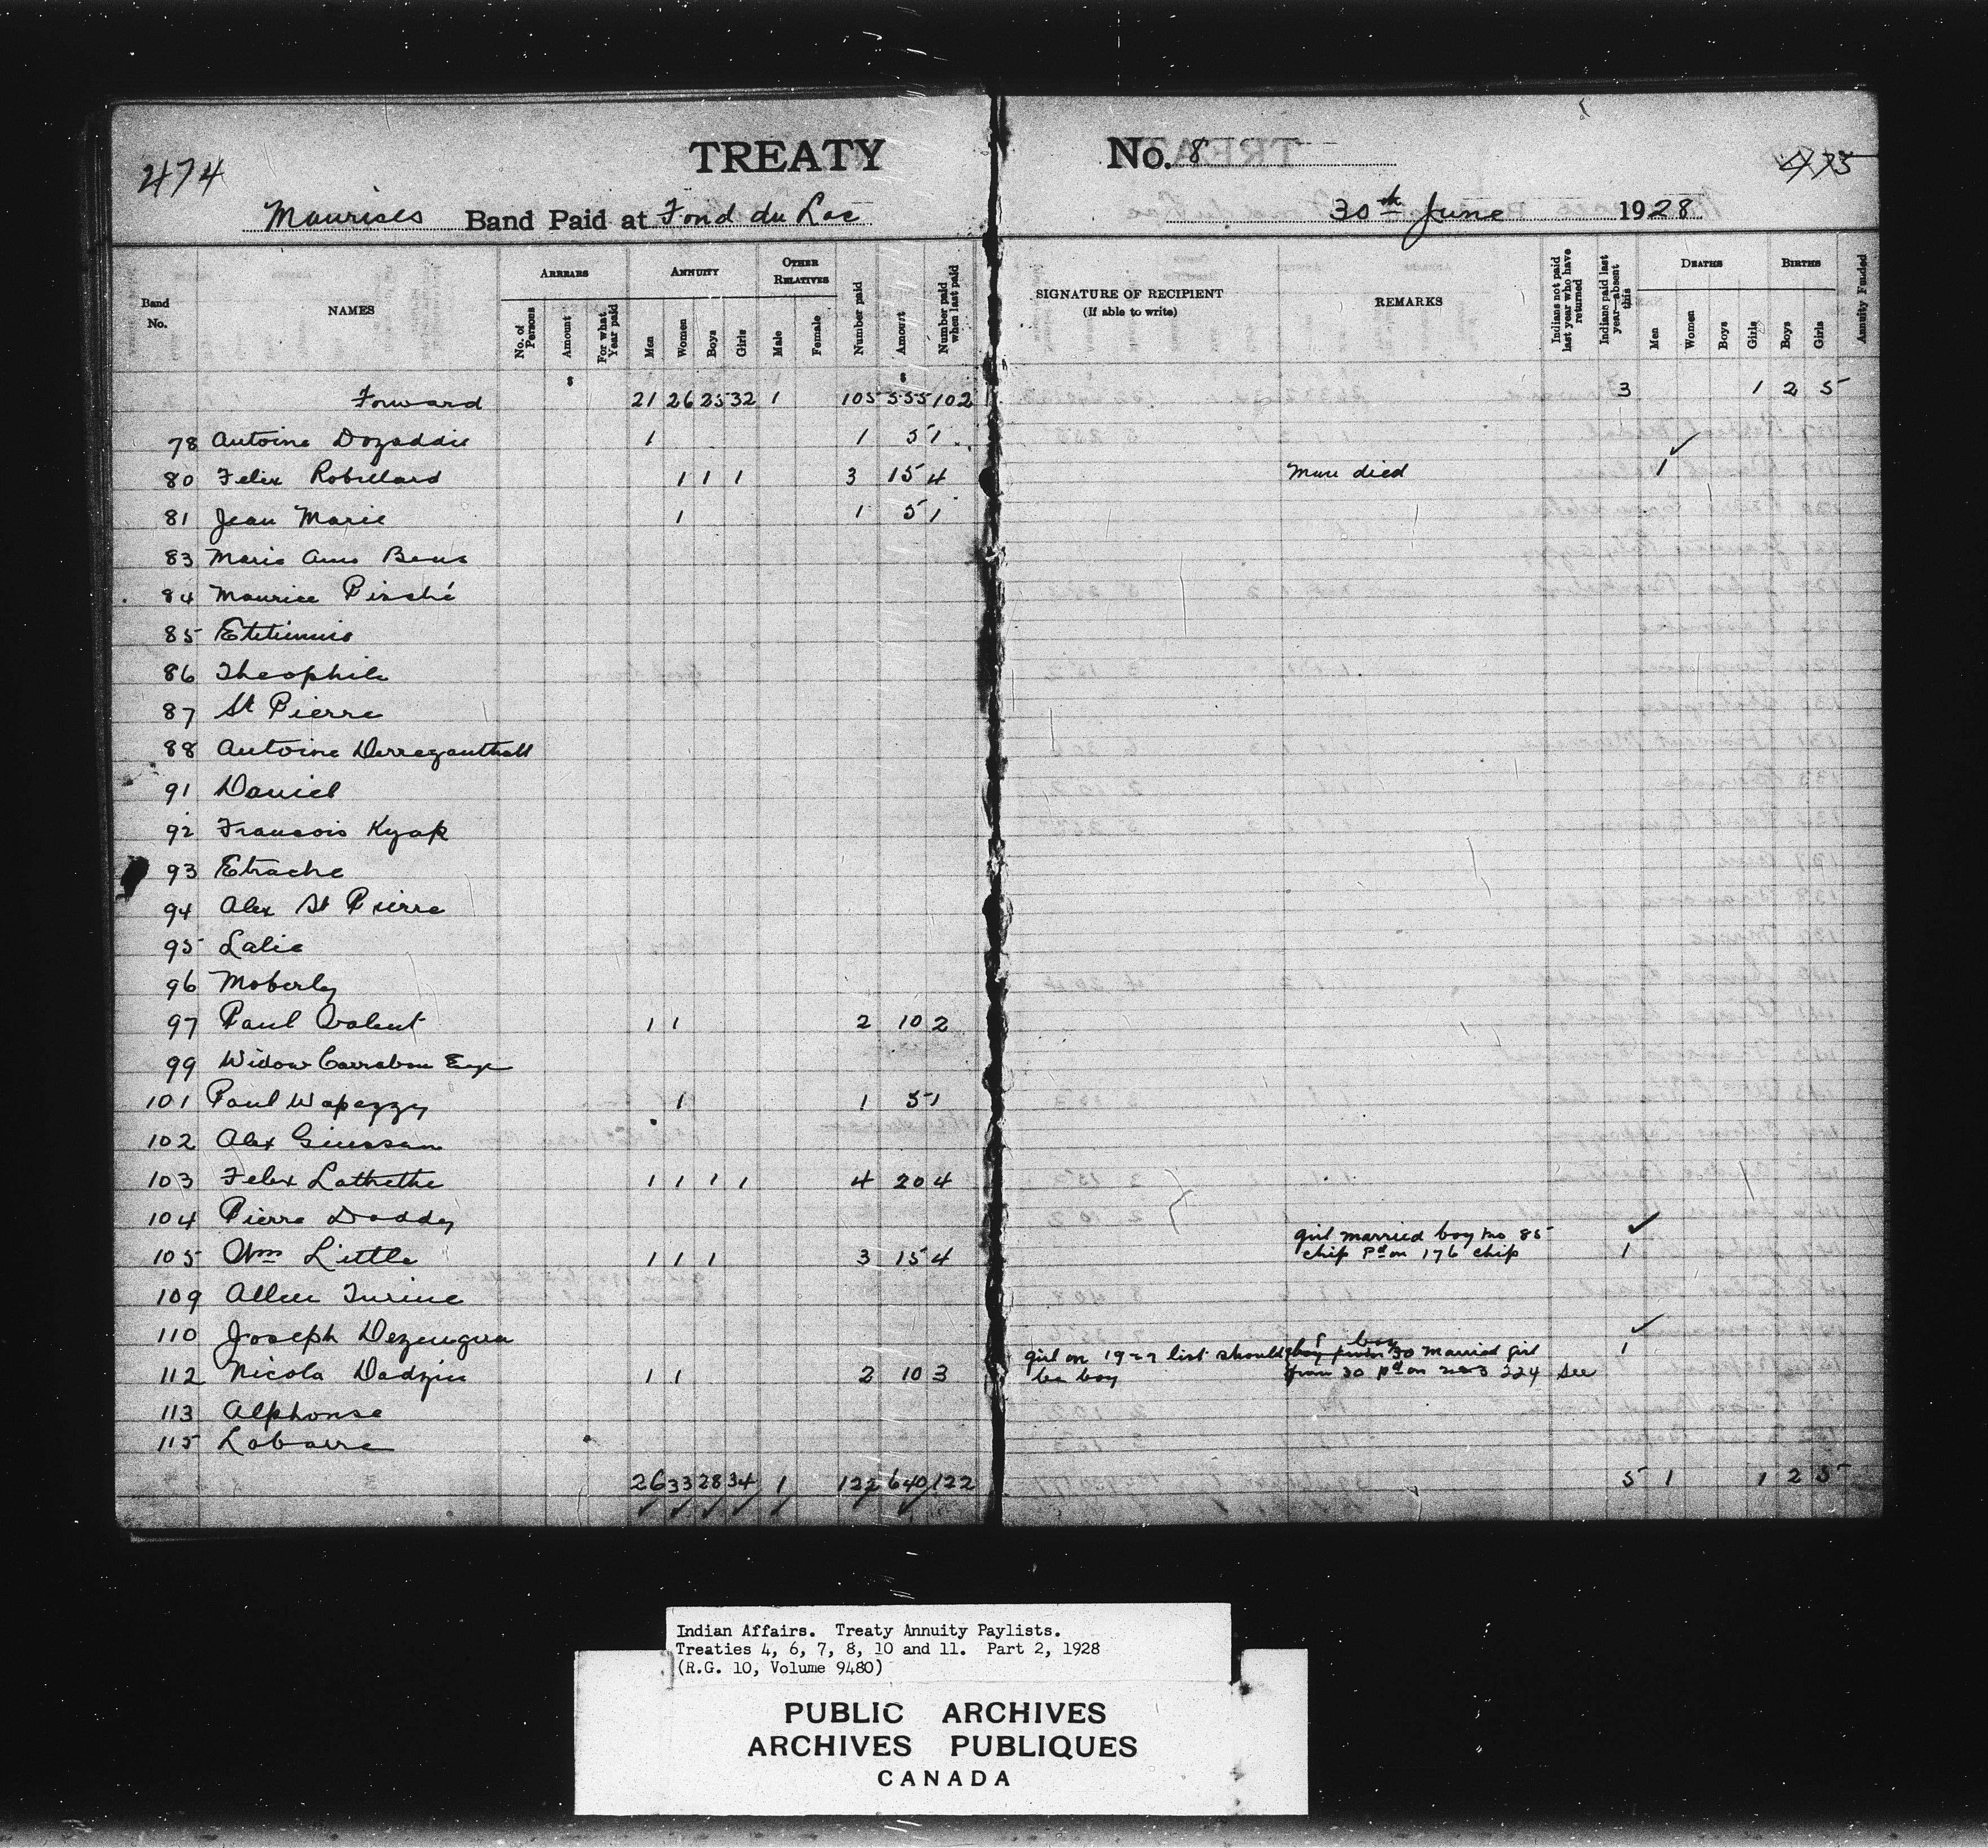 474
TREATY No. 8
475
Maurises Band Paid at Fond du Lac 30th June 1928
Band No.
NAMES
ARREARS
No. of Persons
Amount
For what Year paid
ANNUITY
Men
Women
Boys
Girls
OTHER RELATIVES
Male
Female
Number paid
Amount
Number paid when last paid
SIGNATURE OF RECIPIENT
(If able to write)
REMARKS
Indians not paid last year who have returned
Indians paid last year—absent this
DEATHS
Men
Women
Boys
Girls
BIRTHS
Boys
Girls
Annuity Funded
$ $
Forward 21 26 25 32 1 105 555 102 3 1 2 5
78 Antoine Dozaddie 1 1 5 1
80 Felix Robillard 1 1 1 3 15 4 Man died 1
81 Jean Marie 1 1 5 1
83 Marie Ann Beus
84 Maurice Pisché
85 Etitinnie
86 Theophile
87 St Pierre
88 Antoine Derrezanthall
91 Daniel
92 Francois Kyak
93 Etrache
94 Alex St Pierre
95 Lalie
96 Moberly
97 Paul Valent 1 1 2 10 2
99 Widow Carrabou Eye
101 Paul Wapazzy 1 1 5 1
102 Alex Giussan
103 Felix Lathethe 1 1 1 1 4 20 4
104 Pierre Daddy
girl married boy no 85
105 Wm Little 1 1 1 3 15 4 chip Pd on 176 chip 1
109 Allen Turine
110 Joseph Dezengura
girl on 1927 list should boy from 30 married girl 1
112 Nicola Dadzin 1 1 2 10 3 be boy from 30 pd on 224 See
113 Alphonse
115 Labarre
26 33 28 34 1 122 640 122 5 1 1 2 5
Indian Affairs. Treaty Annuity Paylists.
Treaties 4, 6, 7, 8, 10 and 11. Part 2, 1928
(R.G. 10, Volume 9480)
PUBLIC ARCHIVES
ARCHIVES PUBLIQUES
CANADA